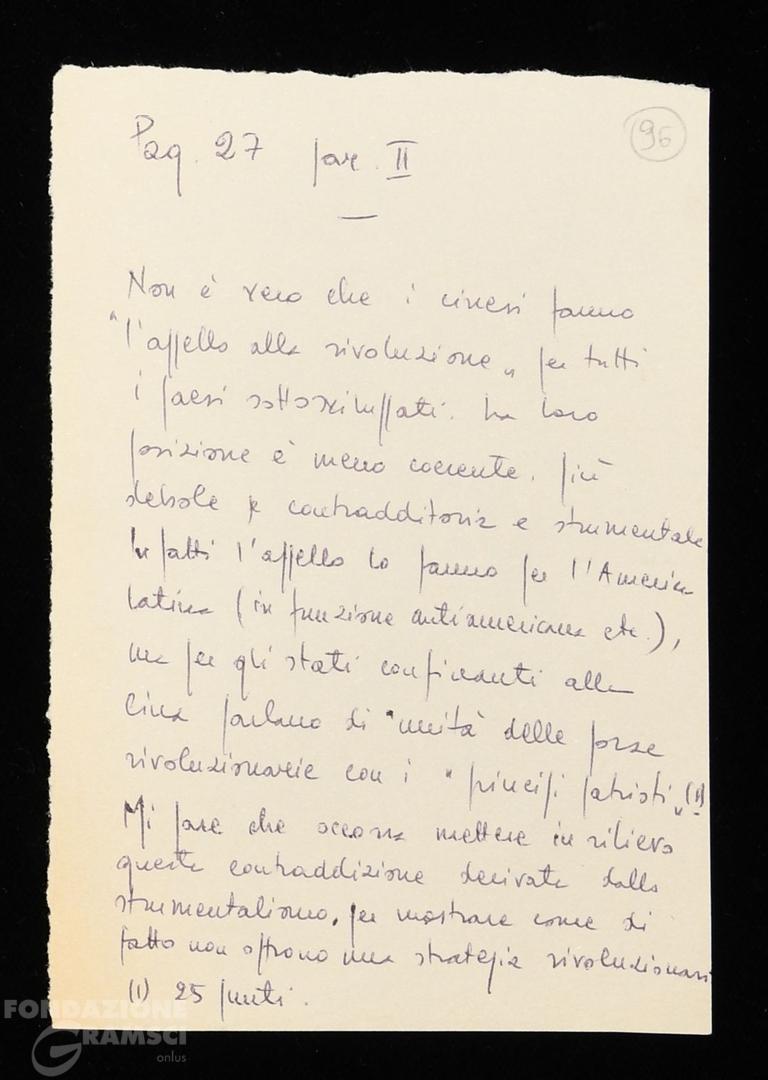 96
Pag. 27 par. II
Non è vero che i cinesi fanno
"l'appello alla rivoluzione" per tutti
i paesi sottosviluppati. La loro
posizione è meno coerente, più
debole e contradditoria e strumentale
Infatti l'appello lo fanno per l'America
latina (in funzione antiamericana etc.),
ma per gli stati confinanti alla
Cina parlano di "unità delle forze
rivoluzionarie con i "principi patrioti" (1)
Mi pare che occorra mettere in rilievo
questa contraddizione derivata dallo
strumentalismo, per mostrare come di
fatto non offrono una strategia rivoluzionaria
(1) 25 punti.
FONDAZIONE
GRAMSCI
onlus